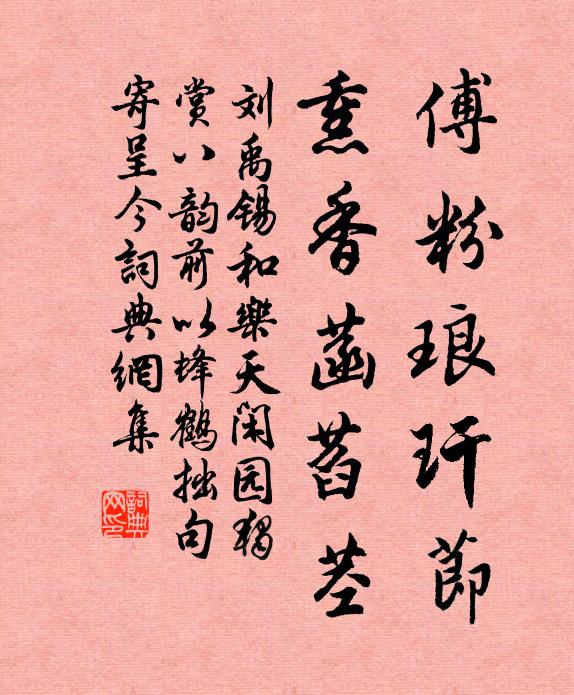 傅粉琅玕節
熏香菡萏莖
刘禹锡和樂天闲园独
赏八韵前以蜂鶴拙句
寄呈今詞典網集
詞典网印